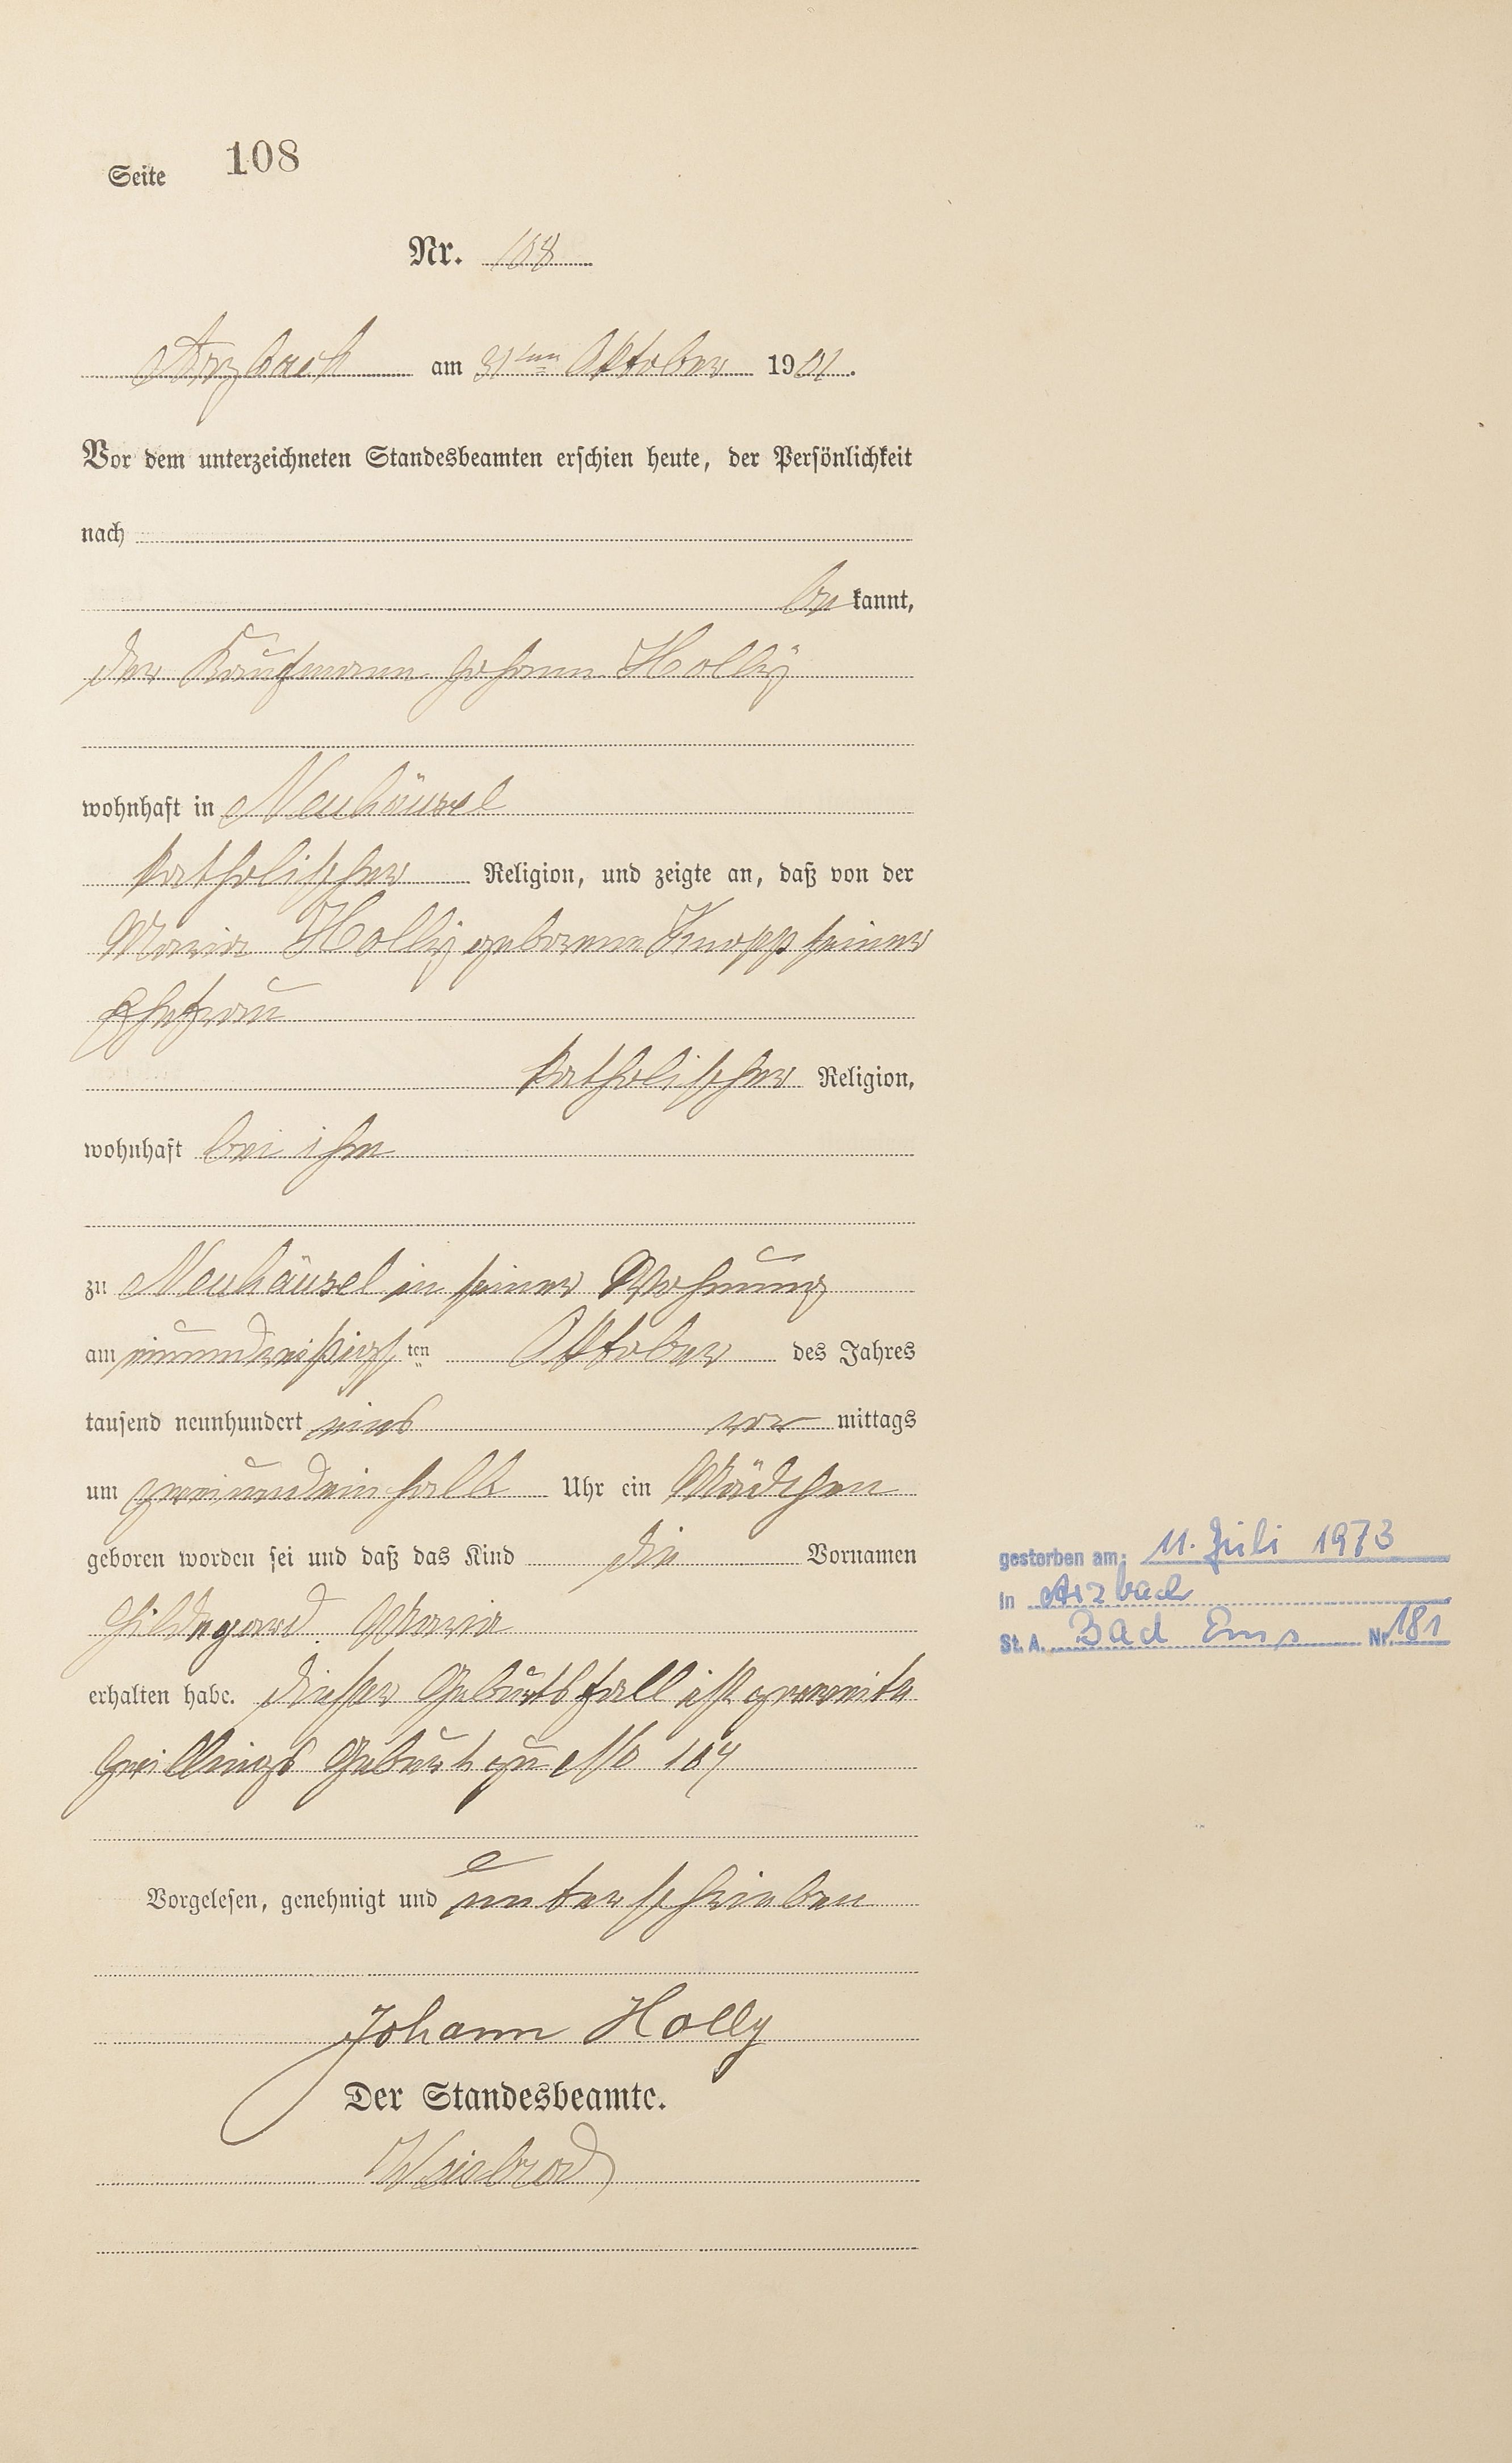 Seite 108
Nr. 108
Arzbach am 31ten Oktober 1901.
Vor dem unterzeichneten Standesbeamten erschien heute, der Persönlichkeit
nach
be kannt,
der Kaufmann Johann Holly
wohnhaft in Neuhäusel
katholischer Religion, und zeigte an, daß von der
Maria Holly geborene Knopp seiner
Ehefrau
katholischer Religion,
wohnhaft bei ihm
zu Neuhäusel in seiner Wohnung
am einunddreißigsten Oktober des Jahres
tausend neunhundert eins vor mittags
um zweiundeinhalb Uhr ein Mädchen
geboren worden sei und daß das Kind die Vornamen
Hildegard Maria
erhalten habe. Dieser Geburtsfall ist zweite
Zwillings Geburt zu No 107
Vorgelesen, genehmigt und unterschrieben
Johann Holly
Der Standesbeamte.
Weisbrod
gestorben am: 11. Juli 1973
in Arzbach
St. A. Bad Ems Nr. 181